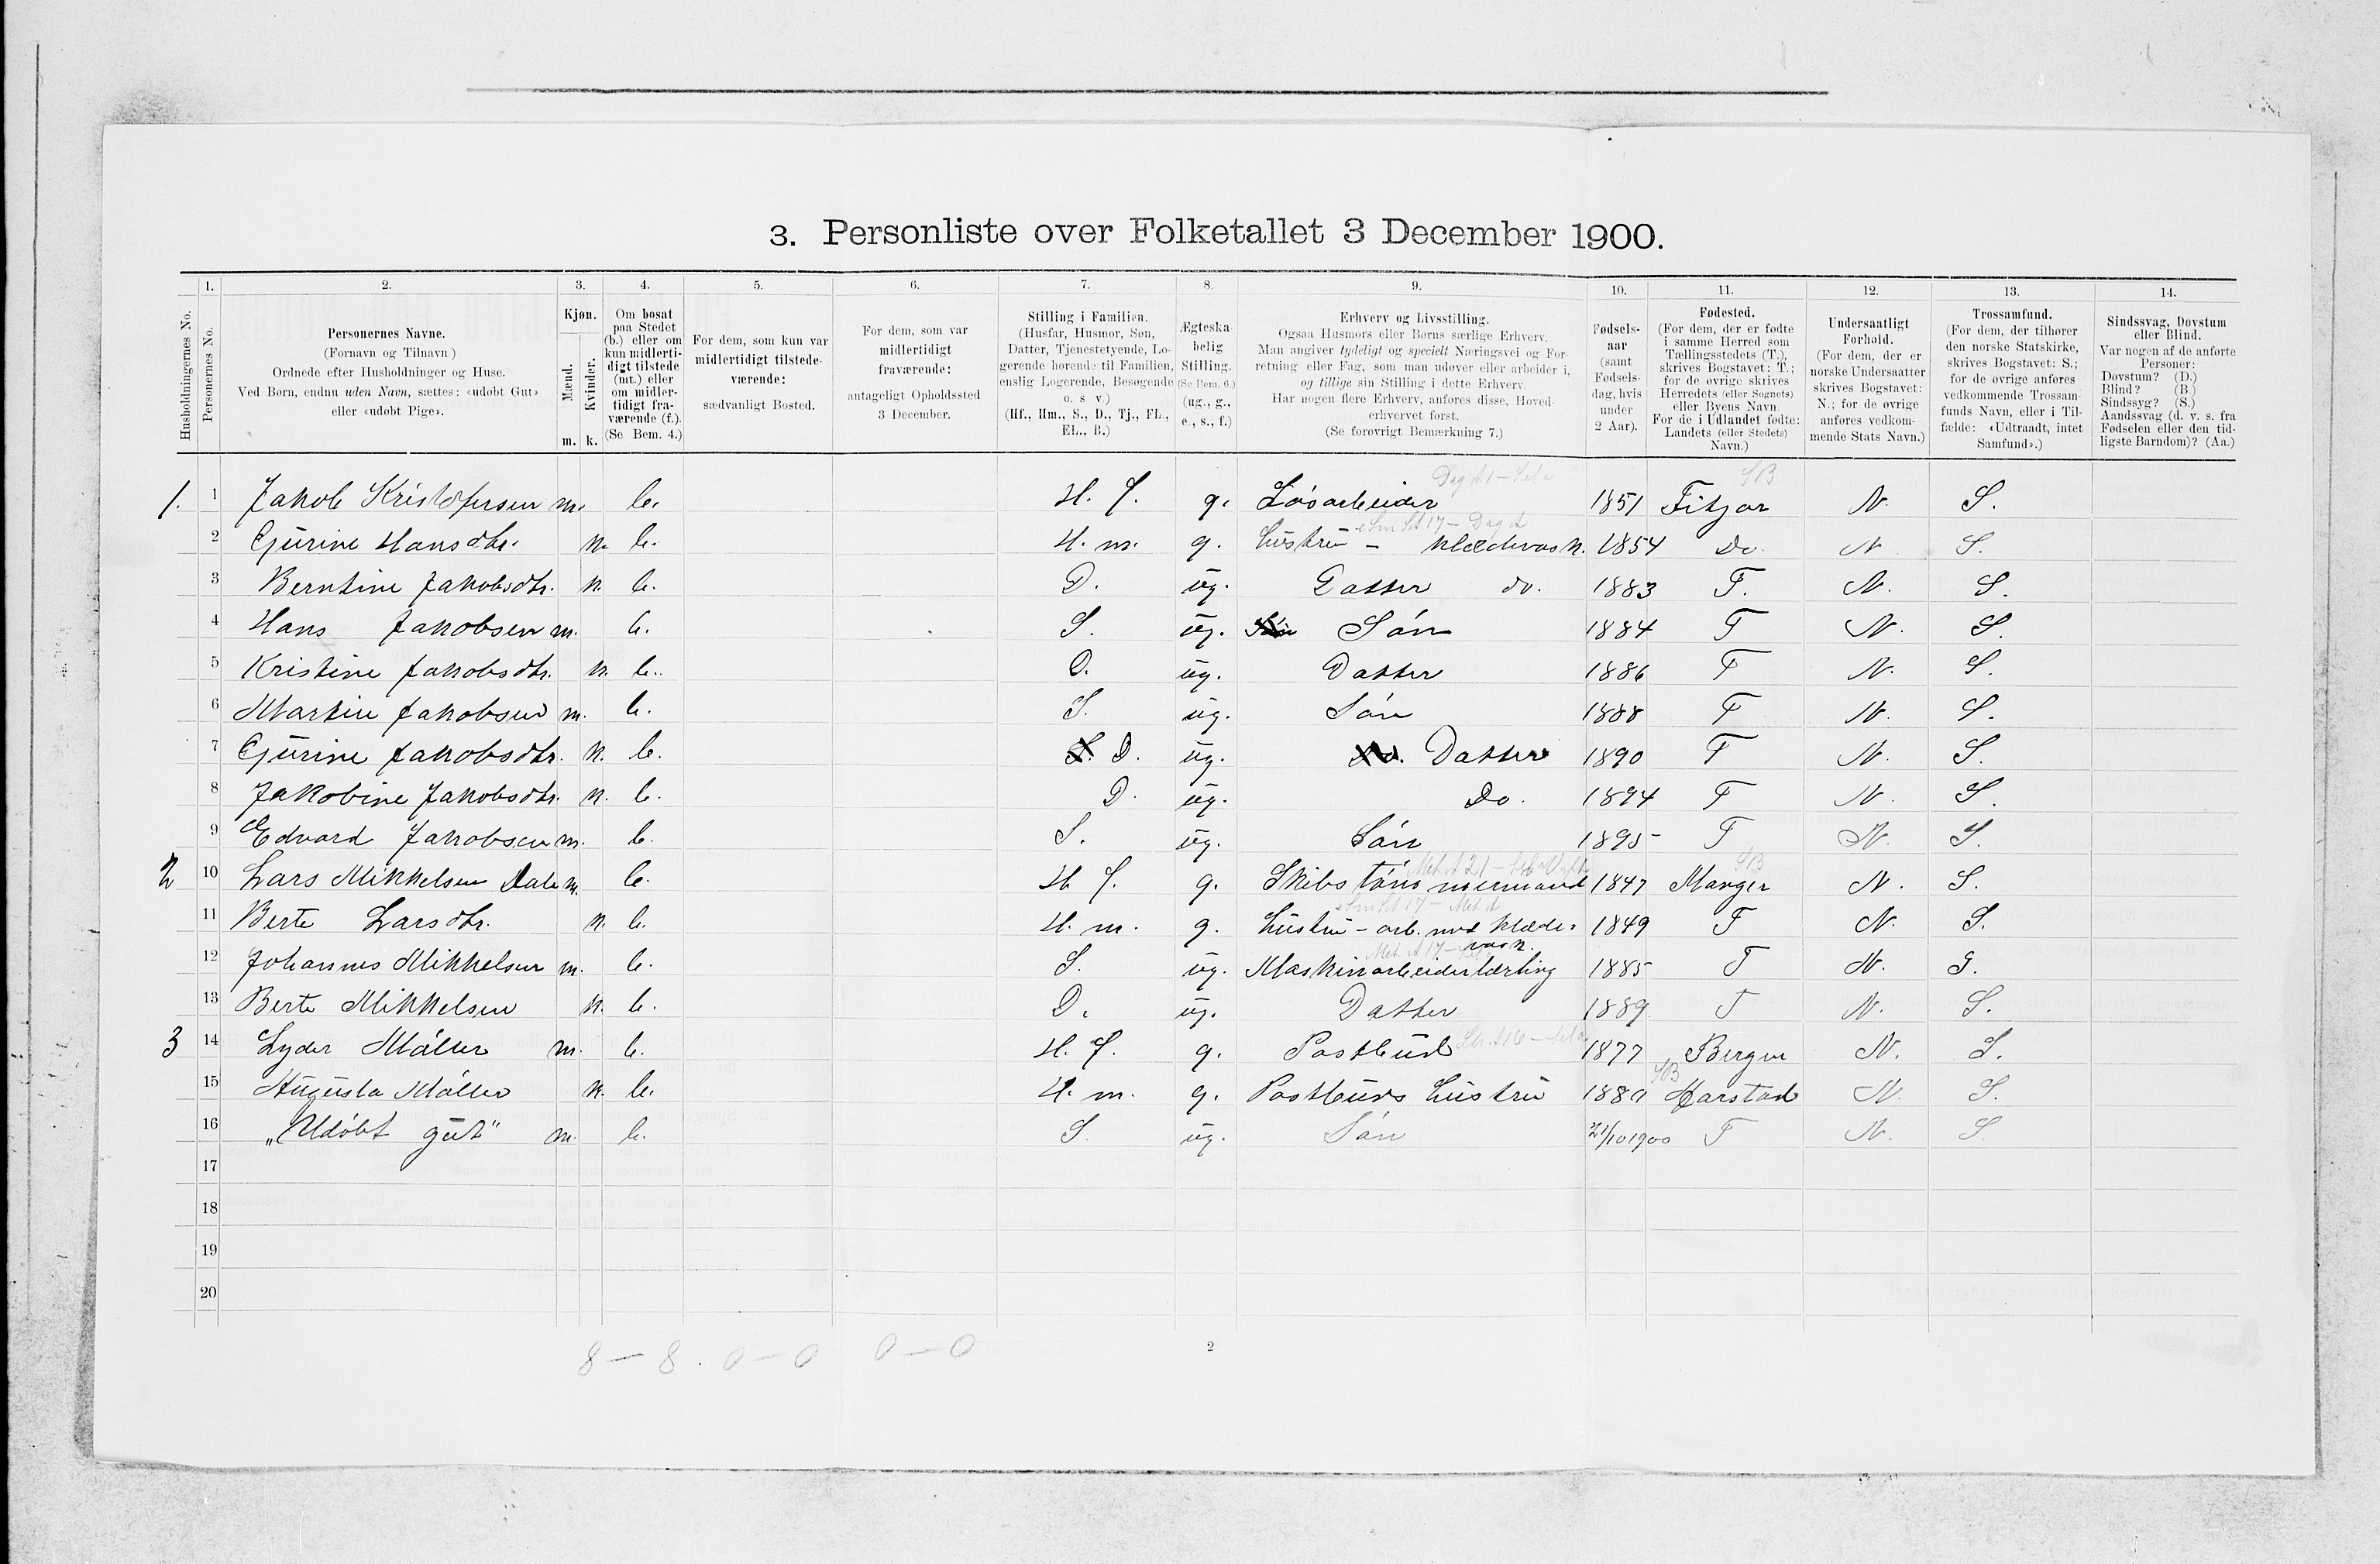 3. Personliste over Folketallet 3 December 1900.
Husholdningernes No.
1. Personernes No.
2. Personernes Navne.
(Fornavn og Tilnavn)
Ordnede efter Husholdninger og Huse.
Ved Børn, endnu uden Navn, sættes: «udøbt Gut»
eller «udøbt Pige».
3. Kjøn.
Mænd. m.
Kvinder. k.
4. Om bosat
paa Stedet
(b.) eller om
kun midlerti-
digt tilstede
(mt.) eller
om midler-
tidigt fra-
værende (f.).
(Se Bem. 4.)
5. For dem, som kun var
midlertidigt tilstede-
værende:
sædvanligt Bosted.
6. For dem, som var
midlertidigt
fraværende:
antageligt Opholdssted
3 December.
7. Stilling i Familien.
(Husfar, Husmor, Søn,
Datter, Tjenestetyende, Lo-
gerende hørende til Familien,
enslig Logerende, Besøgende
o. s. v.)
(Hf., Hm., S., D., Tj., FL.,
EL., B.)
8. Ægteska-
belig
Stilling.
(Se Bem. 6.)
(ug., g.,
e., s., f.)
9. Erhverv og Livsstilling.
Ogsaa Husmors eller Børns særlige Erhverv.
Man angiver tydeligt og specielt Næringsvei og For-
retning eller Fag, som man udøver eller arbeider i,
og tillige sin Stilling i dette Erhverv
Har nogen flere Erhverv, anføres disse, Hoved-
erhvervet først.
(Se forøvrigt Bemærkning 7.)
10. Fødsels-
aar
(samt
Fødsels-
dag, hvis
under
2 Aar).
11. Fødested.
(For dem, der er fødte
i samme Herred som
Tællingsstedets (T.),
skrives Bogstavet: T.;
for de øvrige skrives
Herredets (eller Sognets)
eller Byens Navn
For de i Udlandet fødte:
Landets (eller Stedets)
Navn.)
12. Undersaatligt
Forhold.
(For dem, der er
norske Undersaatter
skrives Bogstavet:
N.; for de øvrige
anføres vedkom-
mende Stats Navn.)
13. Trossamfund.
(For dem, der tilhører
den norske Statskirke,
skrives Bogstavet: S.;
for de øvrige anføres
vedkommende Trossam-
funds Navn, eller i Til-
fælde: «Udtraadt, intet
Samfund».)
14. Sindssvag, Døvstum
eller Blind.
Var nogen af de anførte
Personer:
Døvstum? (D.)
Blind? (B.)
Sindssyg? (S.)
Aandssvag (d. v. s. fra
Fødselen eller den tid-
ligste Barndom)? (Aa.)
1. 1 Jakob Kristofersen m. b. H. f. g. Løsarbeider 1851 Fitjar N. S.
2 Gürine Hansdtr. k. b. H. m. g. hüstrü - klædevask. 1854 Do. N S.
3 Berntine Jakobsdtr. k. b. D. üg. Datter do. 1883 T. N. S.
4 Hans Jakobsen m. b. S. üg. Søn 1884 T N. S.
5 Kristine Jakobsdtr. k. b. D. üg. Datter 1886 T N. S.
6 Martin Jakobsen m. b. S. üg. Søn 1888 T N. S.
7 Gürine Jakobsdtr. k. b. D. üg. Datter 1890 T N. S.
8 Jakobine Jakobsdtr. k. b. D. üg. Do. 1894 T N. S.
9 Edvard Jakobsen m. b. S. üg. Søn 1895 T N. S.
2 10 Lars Mikkelsen Dale m. b. H f. g. Skibstømmermand 1847 Manger N. S.
11 Berte Larsdtr. k. b. H. m. g. hüstrü - arb. med klæde-
vask. 1849 T N. S.
12 Johannes Mikkelsen m. b. S. üg. Maskinarbeiderlærling 1885 T N. S.
13 Berte Mikkelsen k. b. D. üg. Datter 1889 T N. S.
3 14 Lyder Møller m. b. H. f. g. Postbüd 1877 Bergen N. S.
15 Aügüsta Møller k. b. H. m. g. Postbüds hüstrü 1880 Harstad N. S.
16 „Udøbt güt" m. b. S. üg. Søn 21/10 1900 T N. S.
17
18
19
20
8 — 8. 0 — 0 0 — 0
2